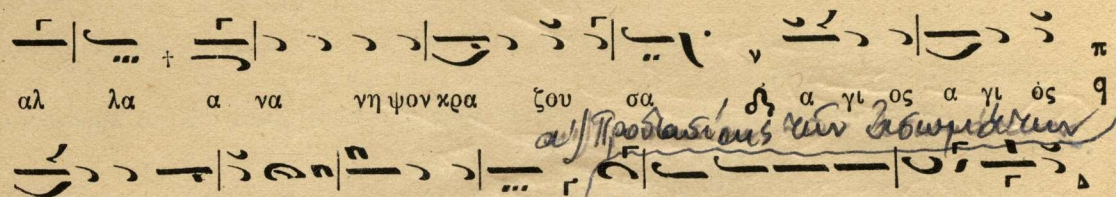 αλ λα α να νη ψον κρα ζου σα α γι ος α γι ος
α') Προστασίαις τῶν Ἀσωμάτων